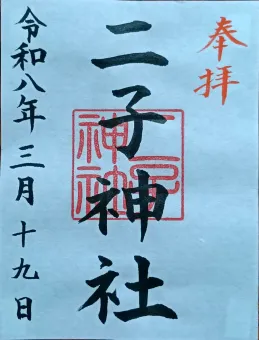 奉拝
二子神社
令和八年三月十九日